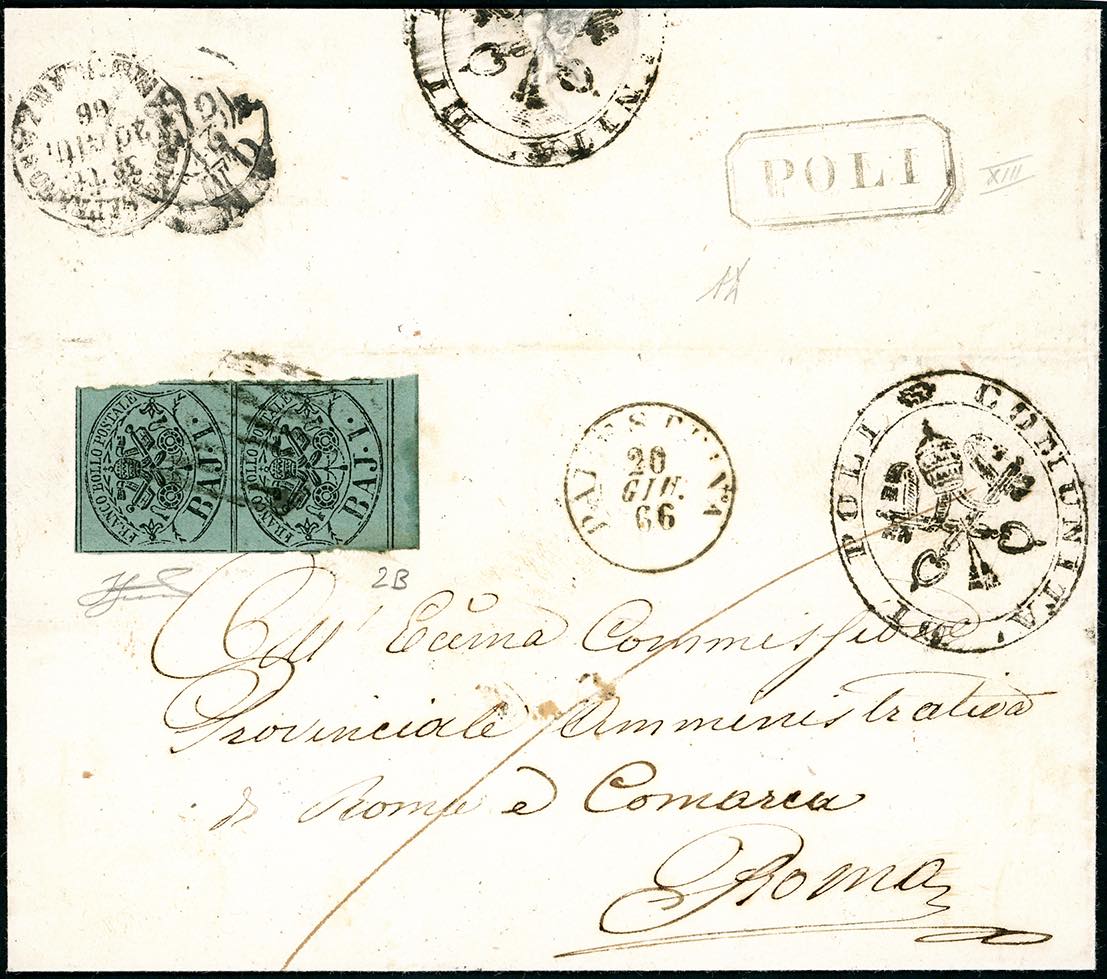 DI
UNITA'
66
20 GIU
POLI
XIII
FRANCO BOLLO POSTALE
BAJ. 1.
FRANCO BOLLO POSTALE
BAJ. 1.
PALESTRINA
20
GIU.
66
COMUNITA' DI POLI
2B
All' Ecc̃ma Commissione
Provinciale Amministrativa
di Roma è Comarca
Roma